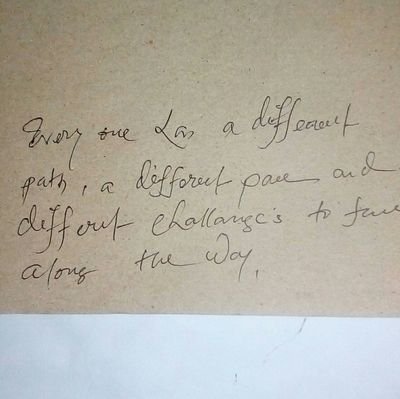 Every one has a different
path, a different pace and
different challange's to face
along the way.